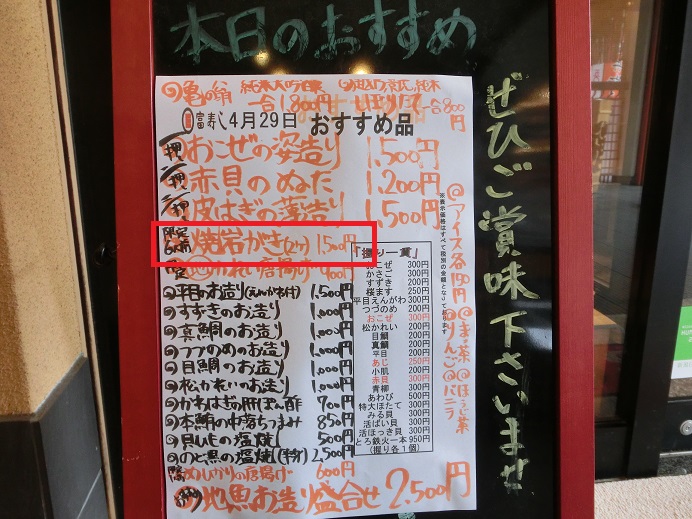 本日のおすすめ
ぜひご賞味下さいませ
◎亀の絹 純米大吟醸 一合1,800円
純米 一合800円
富寿し 4月29日 おすすめ品
一押 ◎おこぜの姿造り 1,500円
一押 ◎赤貝のぬた 1,200円
一押 ◎皮はぎの薄造り 1,500円
限定 焼岩がき 1,500円
かれい唐揚げ 900円
◎平目のお造り(えんがわ付) 1,500円
◎すずきのお造り 1,000円
◎真鯛のお造り 1,000円
◎つづのめのお造り 1,000円
◎目鯛のお造り 1,000円
◎松かれいのお造り 1,000円
◎かわはぎの肝ぽん酢 700円
◎本鮪の中落ちつまみ 850円
◎貝ひもの塩焼 500円
◎のど黒の塩焼(特大) 2,500円
めひかりの唐揚げ 600円
◎地魚お造り盛合せ 2,500円
「握り一貫」
おこぜ 300円
かさご 300円
すずき 200円
桜ます 250円
平目えんがわ 300円
つづのめ 200円
おこぜ 300円
松かれい 200円
目鯛 200円
真鯛 200円
平目 200円
あじ 250円
小肌 200円
赤貝 300円
青柳 300円
あわび 500円
特大ほたて 300円
みる貝 300円
活ばい貝 300円
活ほっき貝 300円
とろ鉄火一本 950円
(握り各1個)
※表示価格はすべて税別の金額となっております
◎アイス各150円
◎ま茶 ◎ほうじ茶
◎りんご ◎バニラ